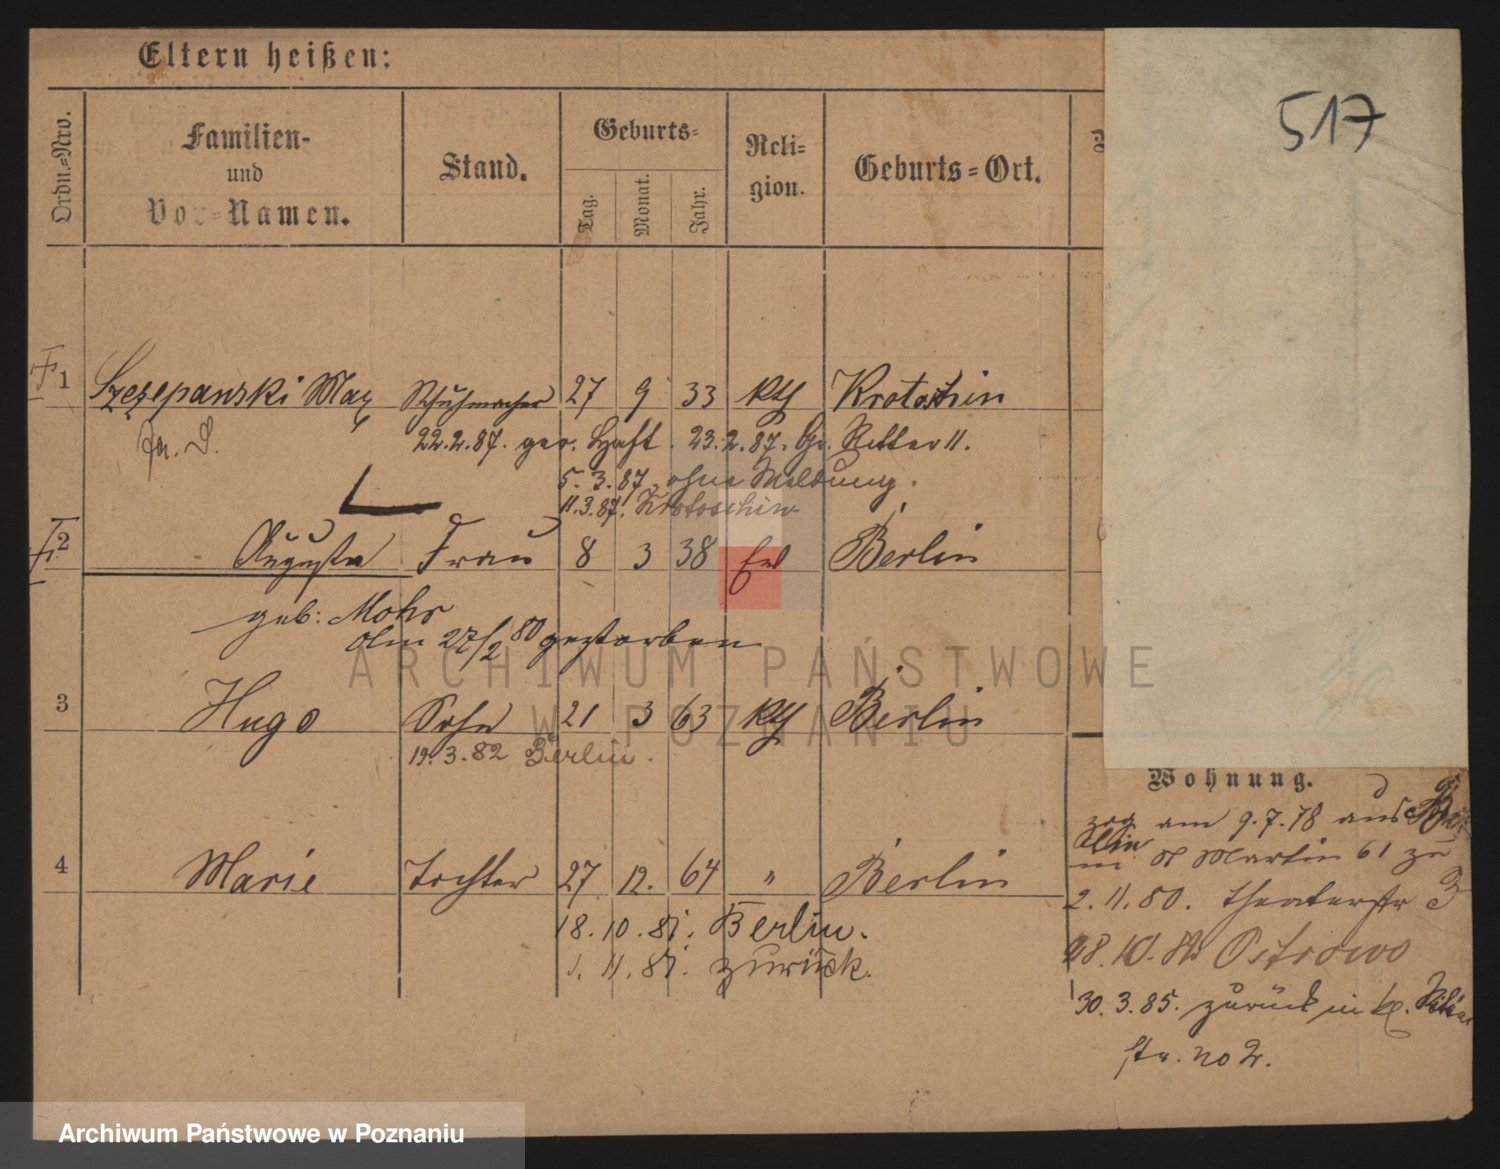 Eltern heißen:
517
Ordn.=Nro.
Familien-
und
Vor=Namen.
Stand.
Geburts=
Tag.
Monat.
Jahr.
Reli=
gion.
Geburts=Ort.
1 Szczepanski Max Schuhmacher 27 9 33 kth Krotoschin
22.2.87. ger. Haft. 23.2.87. Gr. Ritter 11.
5.3.87. ohne Meldung.
11.3.87. Krotoschin
2 Auguste Frau 8 3 38 Ev Berlin
geb: Mohr
am 27/2 80 gestorben
3 Hugo Sohn 21 3 63 kth Berlin
19.3.82 Berlin.
4 Marie Tochter 27 12. 64 " Berlin
18.10.81. Berlin.
1.11.81. zurück.
Wohnung.
zog am 9.7.78 aus
St Martin 61 zu
2.11.80. Theaterstr 3
28.10.82 Ostrowo
30.3.85. zurück in kl.
str. no 2.
ARCHIWUM PAŃSTWOWE
W POZNANIU
Archiwum Państwowe w Poznaniu